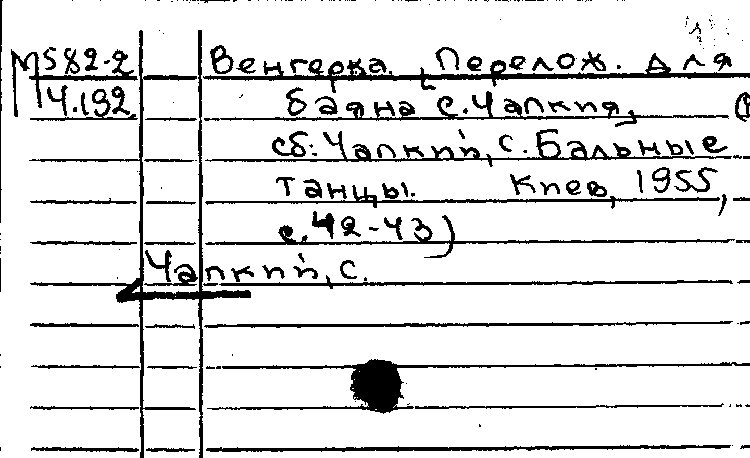 М582-2 Венгерка. [Перелож. для
14.192 баяна С. Чапкия, (В
сб: Чапкий, С. Бальные
танцы. Киев, 1955,
с. 42-43)
Чапкий, С.